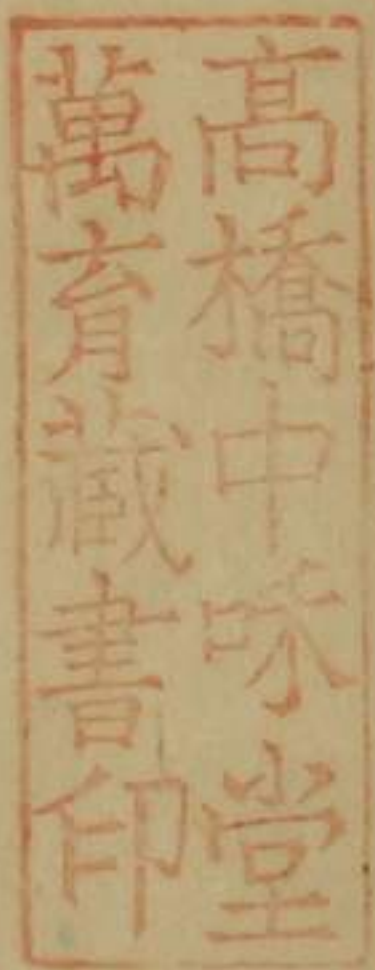 高橋中咊堂
萬育藏書印